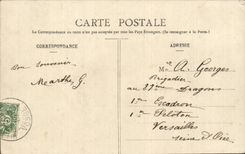 CARTE POSTALE
La Correspondance au recto n'est pas acceptée par tous les Pays Étrangers. (Se renseigner à la Poste.)
CORRESPONDANCE
ADRESSE
Bon Souvenir
Marthe G.
M A. Georges
Brigadier
au Dragons
1er Escadron
1er Peloton
Versailles
Seine & Oise